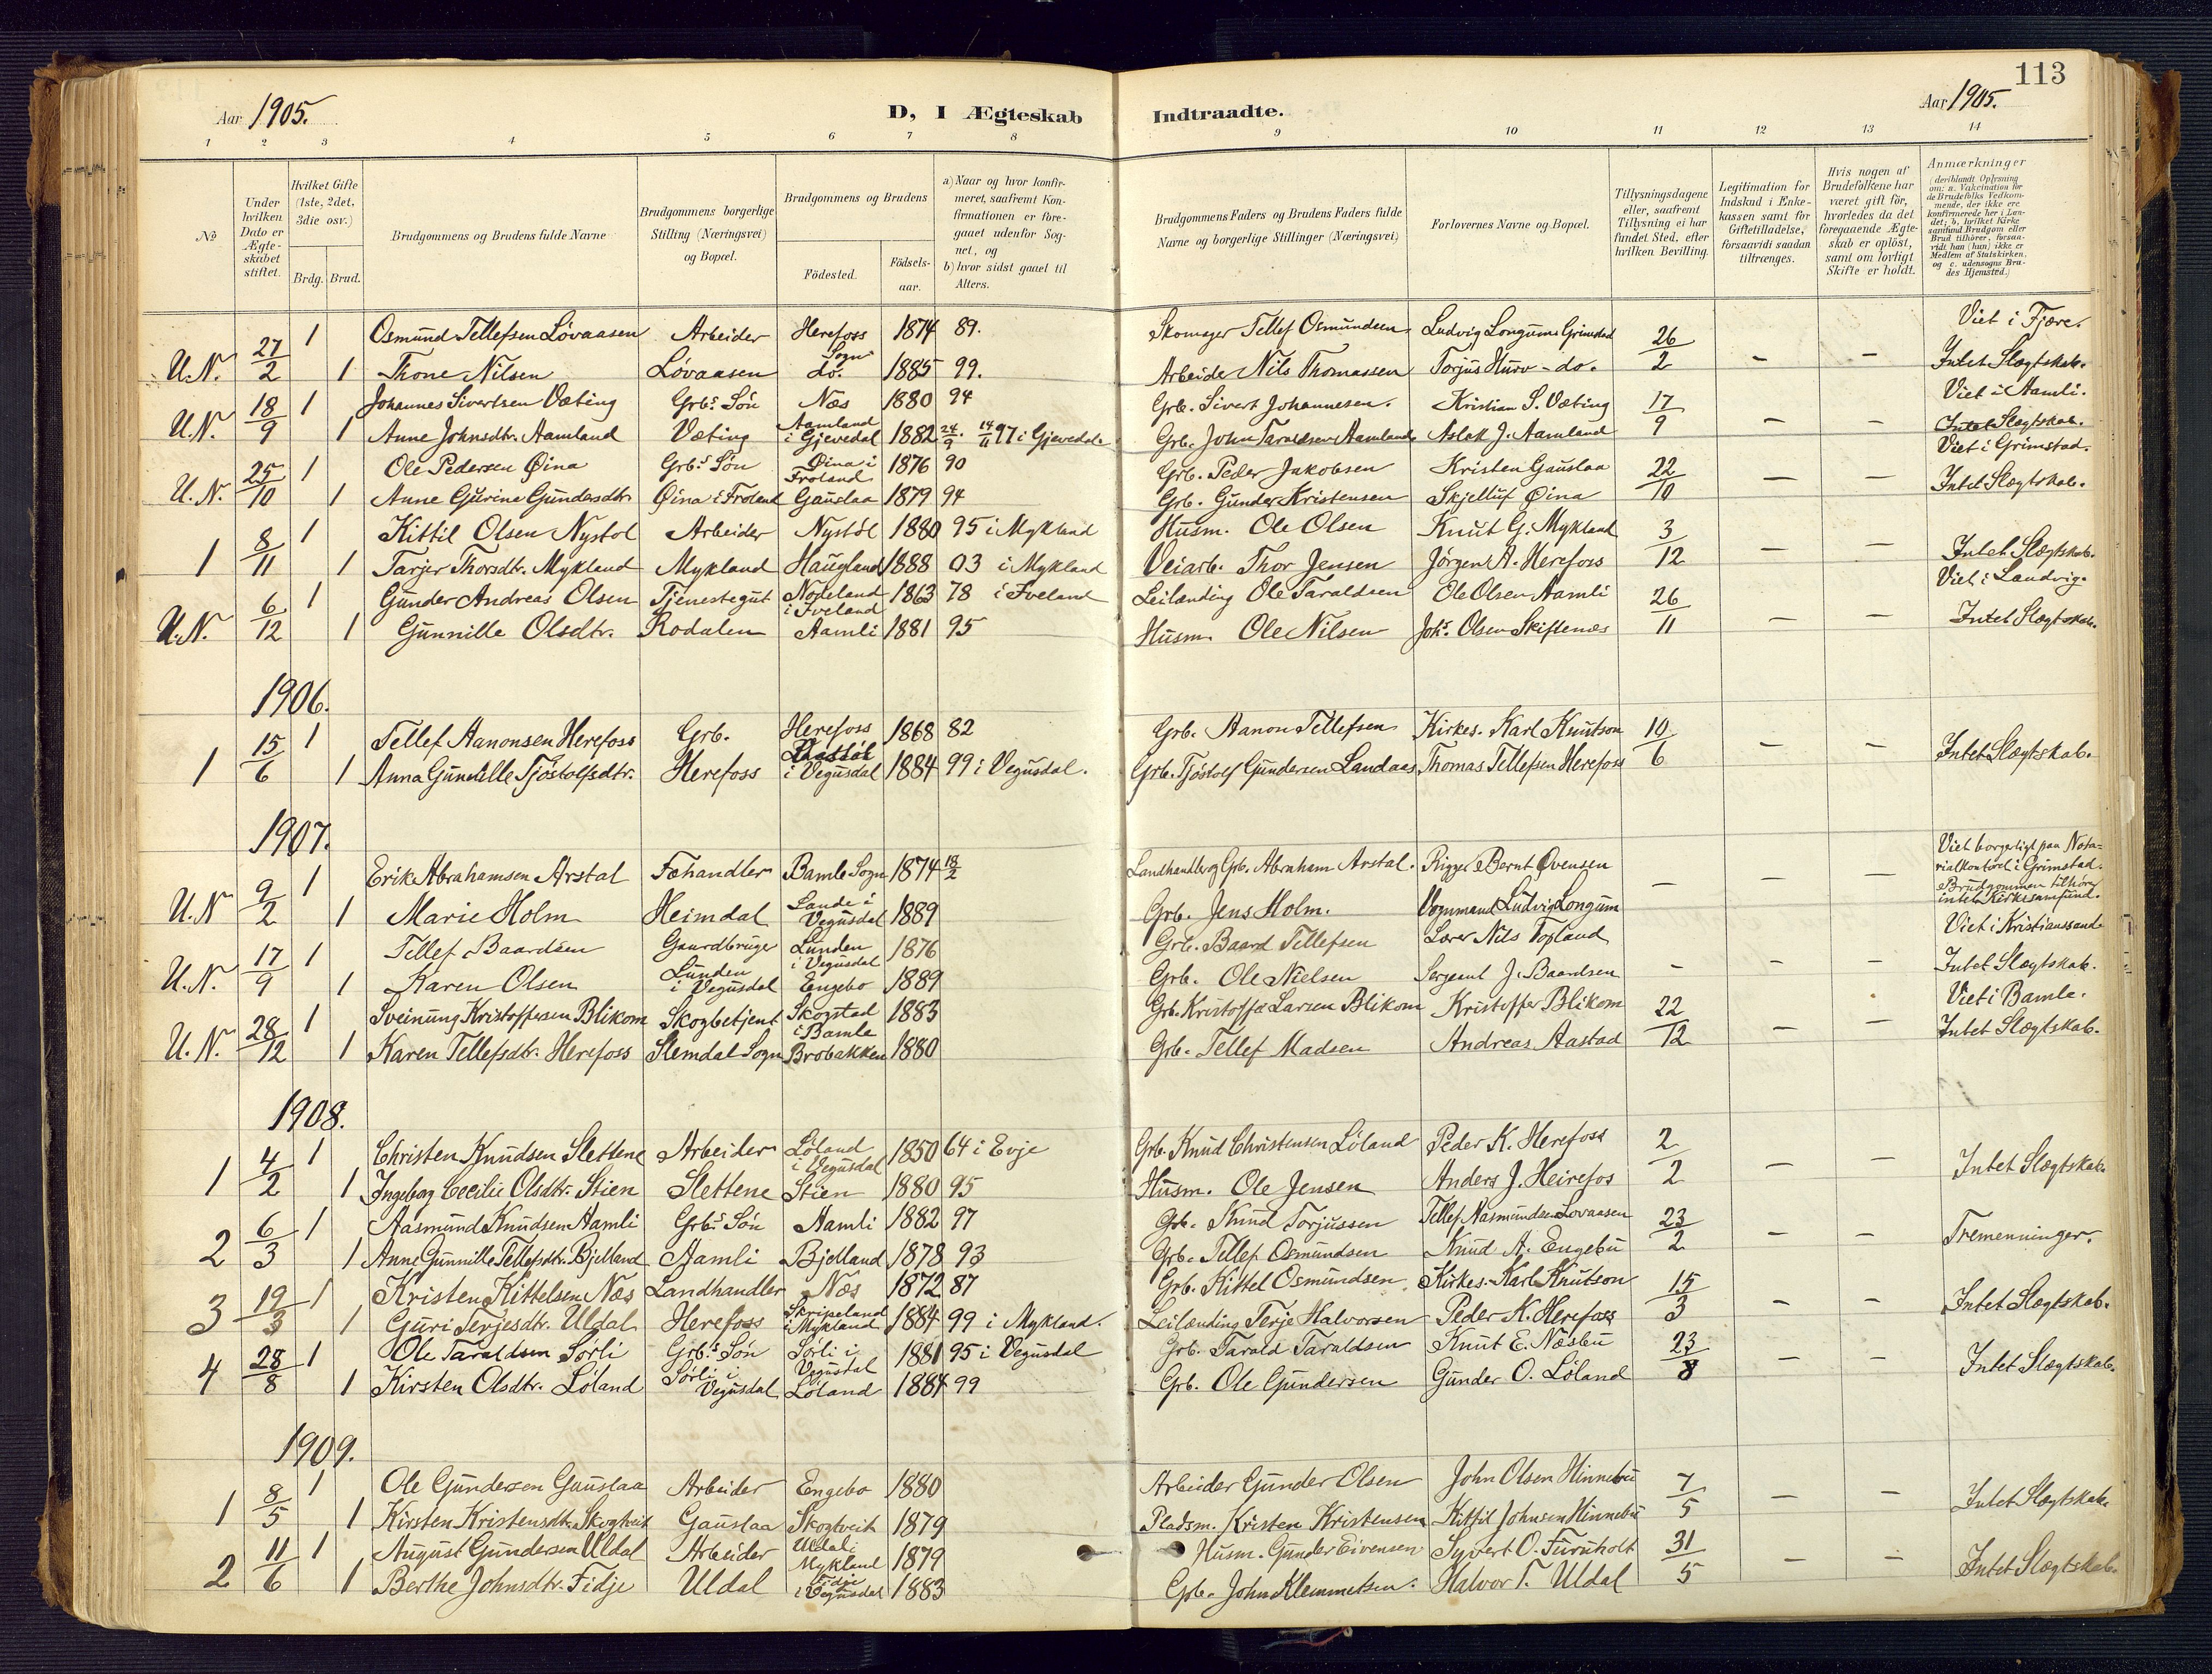 113
Aar 1905.
D, I Ægteskab Indtraadte.
Aar 1905.
1 2 3 4 5 6 7 8 9 10 11 12 13 14
No
Under hvilken Dato er Ægteskabet stiftet.
Hvilket Gifte (1ste, 2det, 3die osv.)
Brdg. Brud.
Brudgommens og Brudens fulde Navne
Brudgommens borgerlige Stilling (Næringsvei) og Bopæl.
Brudgommens og Brudens
Födested.
Födselsaar.
a) Naar og hvor konfirmeret, saafremt Konfirmationen er foregaaet udenfor Sognet, og
b) hvor sidst gaaet til Alters.
Brudgommens Faders og Brudens Faders fulde Navne og borgerlige Stillinger (Næringsvei)
Forlovernes Navne og Bopæl.
Tillysningsdagene eller, saafremt Tillysning ei har fundet Sted, efter hvilken Bevilling.
Legitimation for Indskud i Enkekassen samt for Giftetilladelse, forsaavidt saadan tiltrænges.
Hvis nogen af Brudefolkene har været gift för, hvorledes da det foregaaende Ægteskab er oplöst, samt om lovligt Skifte er holdt.
Anmærkninger (deriblandt Oplysning om: a. Vakcination for de Brudefolks Vedkommende, der ikke ere konfirmerede her i Landet; b. hvilket Kirkesamfund Brudgom eller Brud tilhører, forsaavidt han (hun) ikke er Medlem af Statskirken, og c. udensogns Brudes Hjemsted.)
27/2 1 Osmund Tellefsen Løvaasen Arbeider Herefoss 1874 89. Skomager Tellef Osmundsen Ludvig Longum Grimstad 26/2 Viet i Fjære.
U.N. 1 Thone Nilsen Løvaasen Sogn do. 1885 99. Arbeide Nils Thomassen Torjus Hurv - do. — — Intet Slægtskab.
18/9 1 Johannes Sivertsen Væting Grbs. Søn Næs 1880 94 Grb. Sivert Johannesen. Kristian S. Væting 17/9 Viet i Aamli.
U.N. 1 Anne Johnsdtr. Aamland Væting Aamland i Gjevedal 1882 24/9 14/11 97 i Gjevedal Grb. John Aamland Aslak J. Aamland — — Intet Slægtskab.
25/10 1 Ole Pedersen Øina Grbs. Søn Øina i Froland 1876 90 Grb. Peder Jakobsen Kristen Gauslaa 22/10 Viet i Grimstad.
U.N. 1 Anne Gurine Gundersdtr. Øina i Froland Gauslaa 1879 94 Grb. Gunder Kristensen Skjelluf Øina — — Intet Slægtskab.
8/11 1 Kittil Olsen Nystøl Arbeider Nystøl 1880 95 i Mykland Husm. Ole Olsen Knut G. Mykland 3/12
1 1 Tarjer Thorsdtr. Mykland Mykland Haugland 1888 03 i Mykland Veiarb. Thor Jensen Jörgen A. Herefoss — — Intet Slægtskab.
6/12 1 Gunder Andreas Olsen Tjenestegut Nodeland i Iveland 1863 78 i Iveland Leilænding Ole Taraldsen Ole Olsen Aamli 26/11 Viet i Landvig.
U.N. 1 Gunnille Olsdtr. Rodalen Aamli 1881 95 Husm. Ole Nilsen Johs. Olsen Skiftenes — — Intet Slægtskab.
1906.
15/6 1 Tellef Aanonsen Herefoss Grb. Herefoss 1868 82 Grb. Aanon Tellefsen Kirkes. Karl Knutson 10/6
1 1 Anna Gunnille Tjöstolfsdtr. Herefoss i Vegusdal 1884 99 i Vegusdal. Grb. Tjöstolf Gundersen Landaas Thomas Tellefsen Herefoss — — Intet Slægtskab.
1907.
9/2 1 Erik Abrahamsen Arstal Fæhandler Bamle Sogn 1874 18/2 Landhandler og Grb. Abraham Arstal. Rigger Bernt Øvensen Viet borgerligt paa Notarialkontoret i Grimstad.
U.N 1 Marie Holm Heimdal Lande i Vegusdal 1889 Grb. Jens Holm. Vognmand Ludvig Longum — — — Brudgommen tilhører intet Kirkesamfund.
17/9 1 Tellef Baardsen Gaardbruger Lunden i Vegusdal 1876 Grb. Baard Tellefsen Lærer Nils Topland Viet i Kristianssand
U.N. 1 Karen Olsen Lunden i Vegusdal Engebo 1889 Grb. Ole Nielsen Sergeant J. Baardsen — — — Intet Slægtskab.
28/12 1 Sveinung Kristoffersen Blikom Skogbetjent Skogstad i Bamle 1883 Grb. Kristoffer Larsen Blikom Kristoffer Blikom 22/12 Viet i Bamle.
U.N. 1 Karen Tellefsdtr. Herefoss Slemdal Sogn Brobakken 1880 Grb. Tellef Madsen Andreas Aastad — — Intet Slægtskab.
1908.
4/2 1 Christen Knudsen Slettene Arbeider Løland i Vegusdal 1850 64 i Evje Grb. Knud Christensen Løland Peder K. Herefoss 2/2
1 1 Ingeborg Cecilie Olsdtr. Stien Slettene Stien 1880 95 Husm. Ole Jensen Anders J. Heirefos — — Intet Slægtskab.
6/3 1 Aasmund Knudsen Aamli Grbs. Søn Aamli 1882 97 Grb. Knud Torjussen Tellef Aasmundsen Løvaasen 23/2
2 1 Anne Gunnille Tellefsdtr. Bjelland Aamli Bjelland 1878 93 Grb. Tellef Osmundsen Knud A. Engebu — — Tremenninger.
19/3 1 Kristen Kittelsen Næs Landhandler Næs 1872 87 Grb. Kittel Osmundsen Kirkes. Karl Knutson 15/3
3 1 Guri Terjesdtr. Uldal Herefoss Skripeland i Mykland 1884 99 i Mykland. Leilænding Terje Halvorsen Peder K. Herefoss — — Intet Slægtskab.
28/8 1 Ole Taraldsen Sørli Grbs. Søn Sørli i Vegusdal 1881 95 i Vegusdal Grb. Tarald Taraldsen Knut E. Næsbu 23/8
4 1 Kirsten Olsdtr. Løland Sørli i Vegusdal Løland 1884 99 Grb. Ole Gundersen Gunder O. Løland — — Intet Slægtskab.
1909.
8/5 1 Ole Gundersen Gauslaa Arbeider Engebo 1880 Arbeider Gunder Olsen John Olsen Hinnebu 7/5
1 1 Kirsten Kristensdtr. Skogtveit Gauslaa Skogtveit 1879 Pladsm. Kristen Kristensen Kittil Johnsen Hinnebu — — Intet Slægtskab.
11/6 1 August Gundersen Uldal Arbeider Uldal i Mykland 1879 Husm. Gunder Eivensen Syvert O. Furuholt 31/5
2 1 Berthe Johnsdtr. Fidje Uldal Fidje i Vegusdal 1883 Grb. John Klemmetsen. Halvor T. Uldal — — Intet Slægtskab.